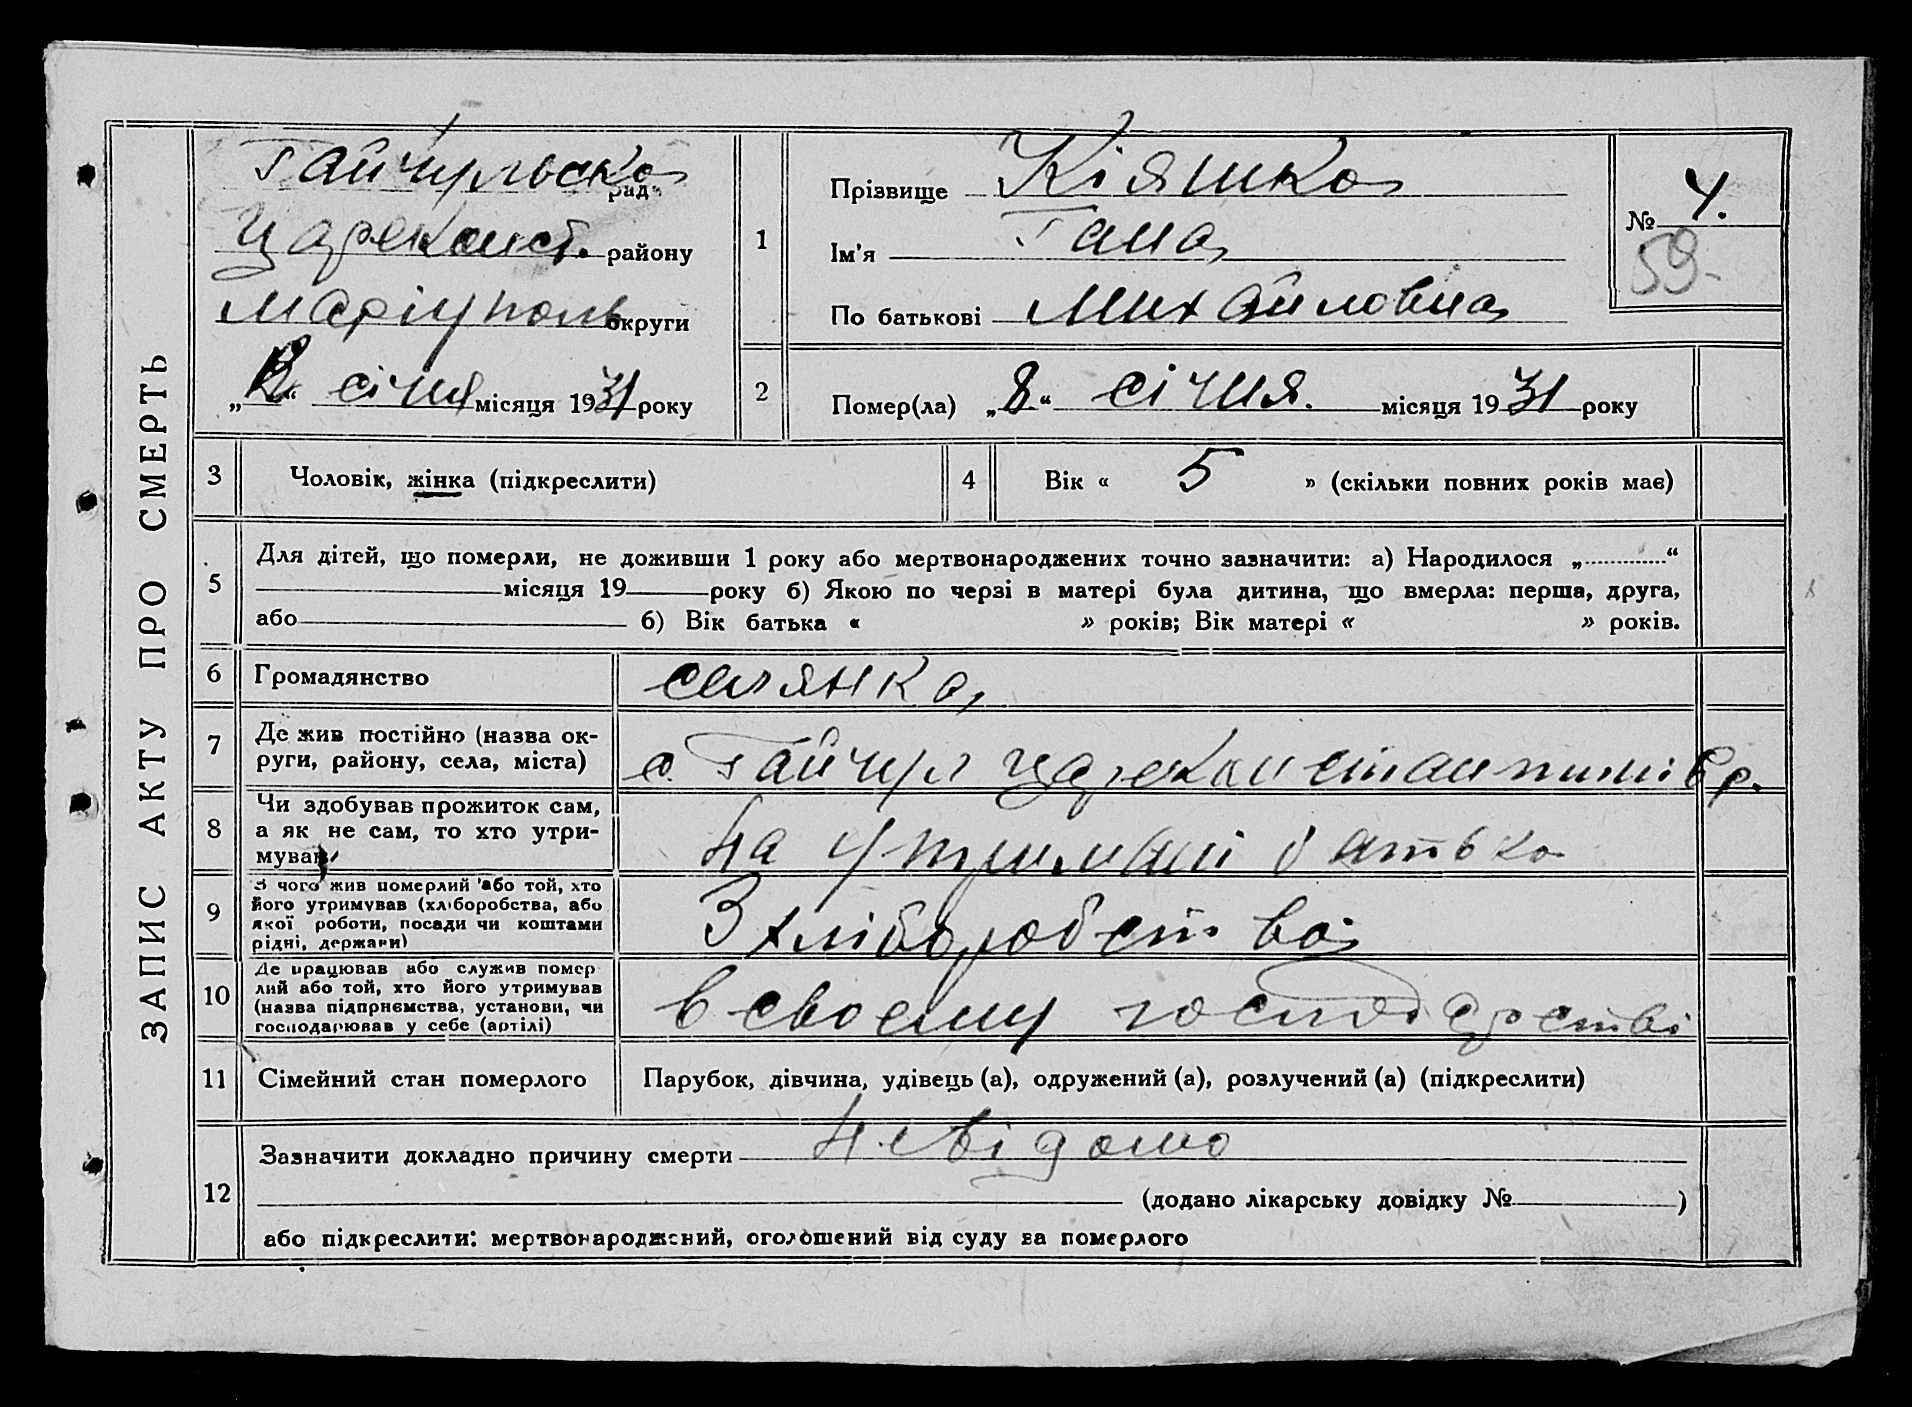 ЗАПИС АКТУ ПРО СМЕРТЬ
Гайчульська рада
Цареконст. району
Маріуполь округи
„ “ січня місяця 1931 року
1
Прізвище Кіяшко
Ім'я Гана
По батькові Михайловна
№ 4.
59-
2
Помер(ла) „8“ січня. місяця 1931 року
3
Чоловік, жінка (підкреслити)
4
Вік « 5 » (скільки повних років має)
5
Для дітей, що померли, не доживши 1 року або мертвонароджених точно зазначити: а) Народилося „ “
місяця 19 року б) Якою по черзі в матері була дитина, що вмерла: перша, друга,
або б) Вік батька « » років; Вік матері « » років.
6
Громадянство
селянка
7
Де жив постійно (назва ок-
руги, району, села, міста)
с. Гайчул Цареконстантинів р.
8
Чи здобував прожиток сам,
а як не сам, то хто утри-
мував
на утримані батька
9
З чого жив померлий або той, хто
його утримував (хліборобства, або
якої роботи, посади чи коштами
рідні, держави)
З хліборобства
10
Де працював або служив помер
лий або той, хто його утримував
(назва підприємства, установи, чи
господарював у себе (артілі)
в своєму господарстві
11
Сімейний стан померлого
Парубок, дівчина, удівець (а), одружений (а), розлучений (а) (підкреслити)
12
Зазначити докладно причину смерти невідомо
(додано лікарську довідку № )
або підкреслити: мертвонароджений, оголошений від суду за померлого